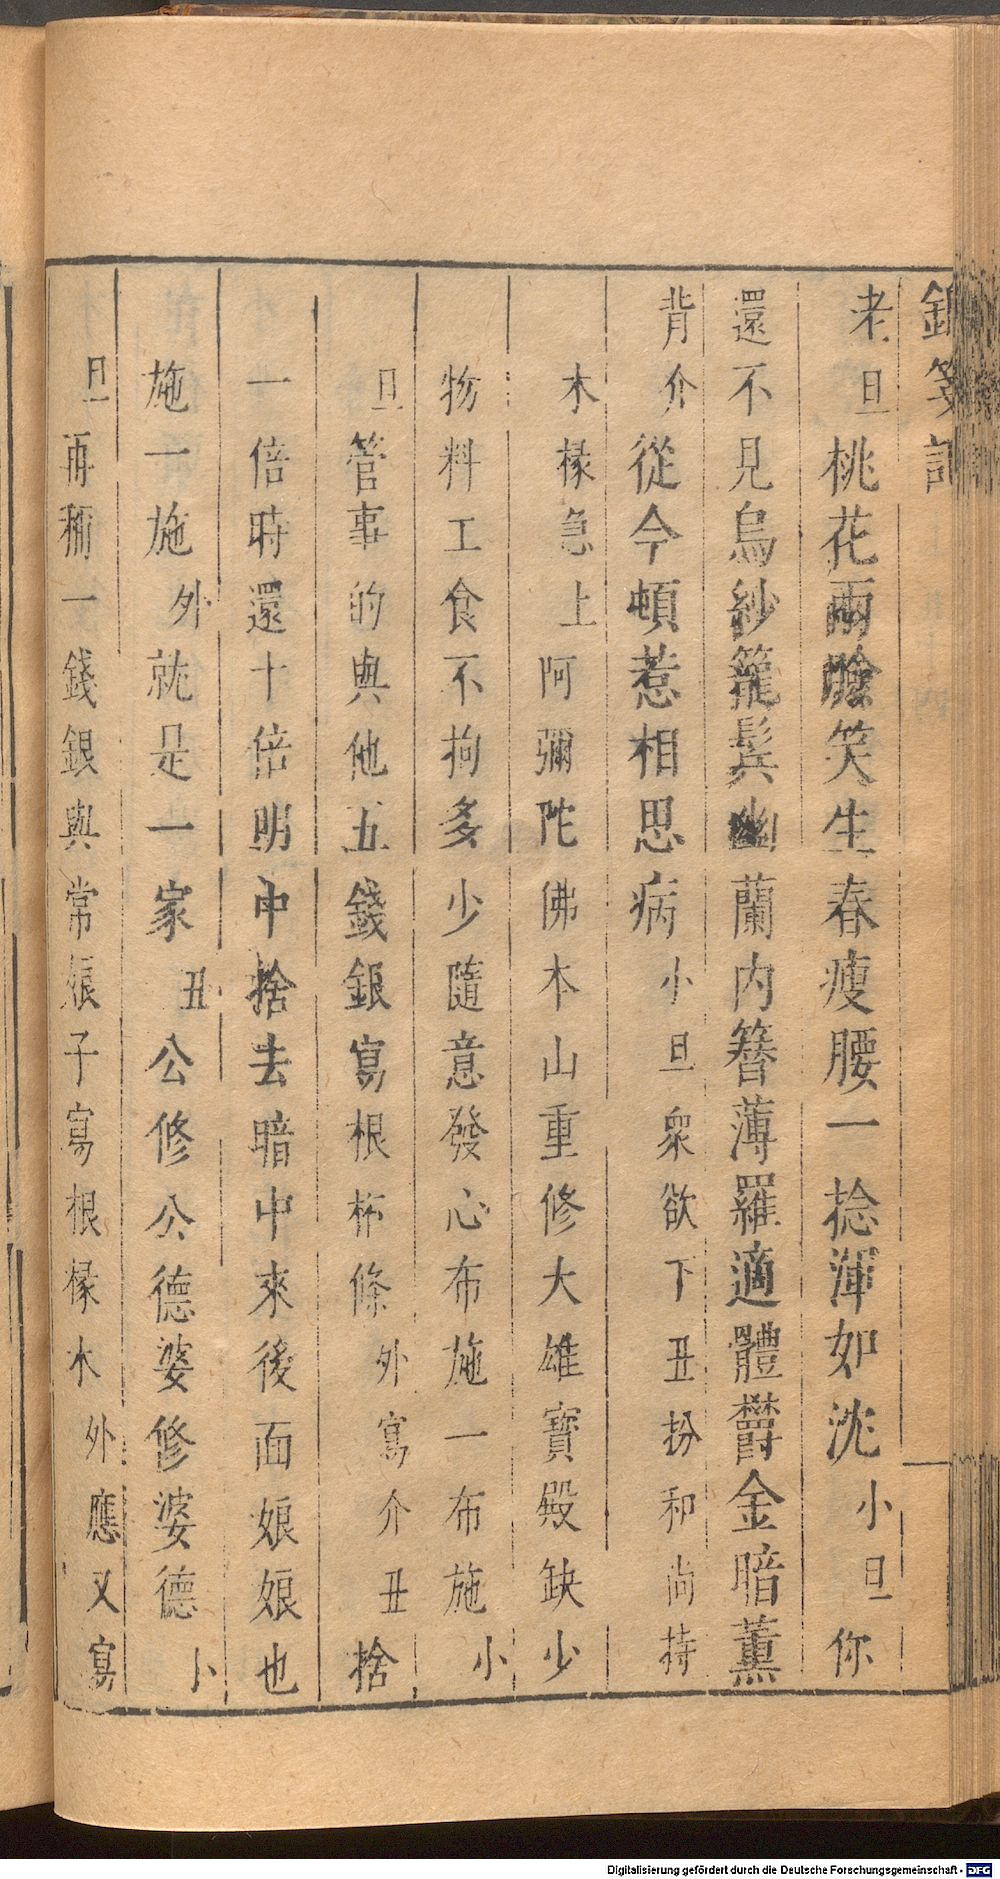 老旦桃花兩臉笑生春瘦腰一捻渾如沈小旦你
還不見烏紗籠鬂幽蘭內簪薄羅適體欝金暗薰
背介從今頓惹相思病小旦衆欲下丑扮和尚持
木椽急上阿彌陀佛本山重修大雄寶殿缺少
物料工食不拘多少隨意發心布施一布施小
旦管事的與他五錢銀寫根椽條外寫介丑捨
一倍時還十倍明中捨去暗中來後面娘娘也
施一施外就是一家丑公修公德婆修婆德小
旦再稱一錢銀與常娘子寫根椽木外應又寫
Digitalisierung gefördert durch die Deutsche Forschungsgemeinschaft - DFG